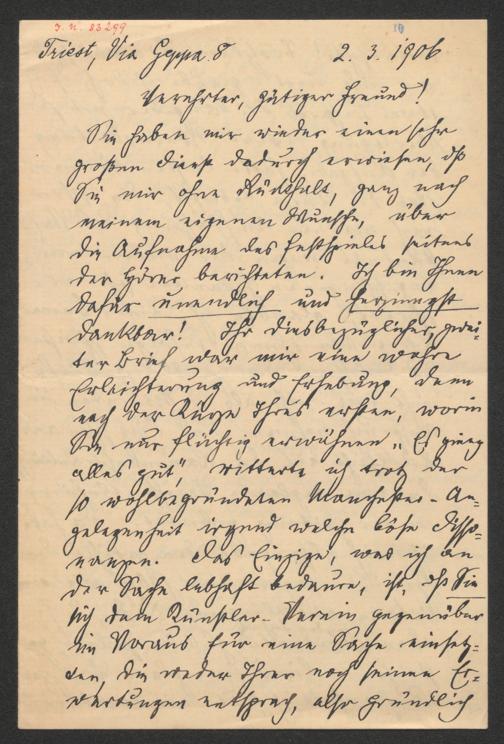 J. N. 83299
10
Triest, Via Geppa 8 2. 3. 1906
Verehrter, gütiger Freund!
Sie haben mir wieder einen sehr
großen Dienst dadurch erwiesen, dß
Sie mir ohne Rückhalt, ganz nach
meinem eigenen Wunsche, über
die Aufnahme des Festspieles seitens
der Hörer berichteten. Ich bin Ihnen
dafür unendlich und herzinnigst
dankbar! Ihr diesbezüglicher, zwei-
ter Brief war mir eine wahre
Erleichterung und Erhebung, denn
nach der Kürze Ihres ersten, worin
Sie nur flüchtig erwähnen „Es ging
alles gut", witterte ich trotz der
so wohlbegründeten Manchester-An-
gelegenheit irgend welche böse Disso-
nanzen. Das Einzige, was ich an
der Sache lebhaft bedaure, ist, dß Sie
sich dem Künstler-Verein gegenüber
im Voraus für eine Sache einsetz-
ten, die weder Ihren noch seinen Er-
wartungen entsprach, also gründlich